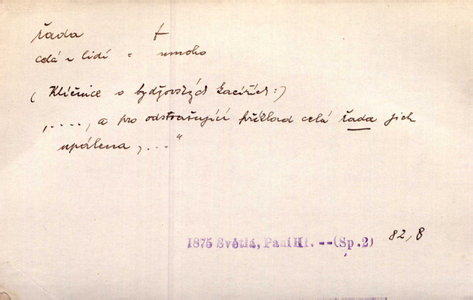 řada f
celá ~ lidí = mnoho
(Klíčnice o bydžovských kacířích:)
„...., a pro odstrašující příklad celá řada jich
upálena,..."
1875 Světlá, Paní Kl. --(Sp.2) 82,8